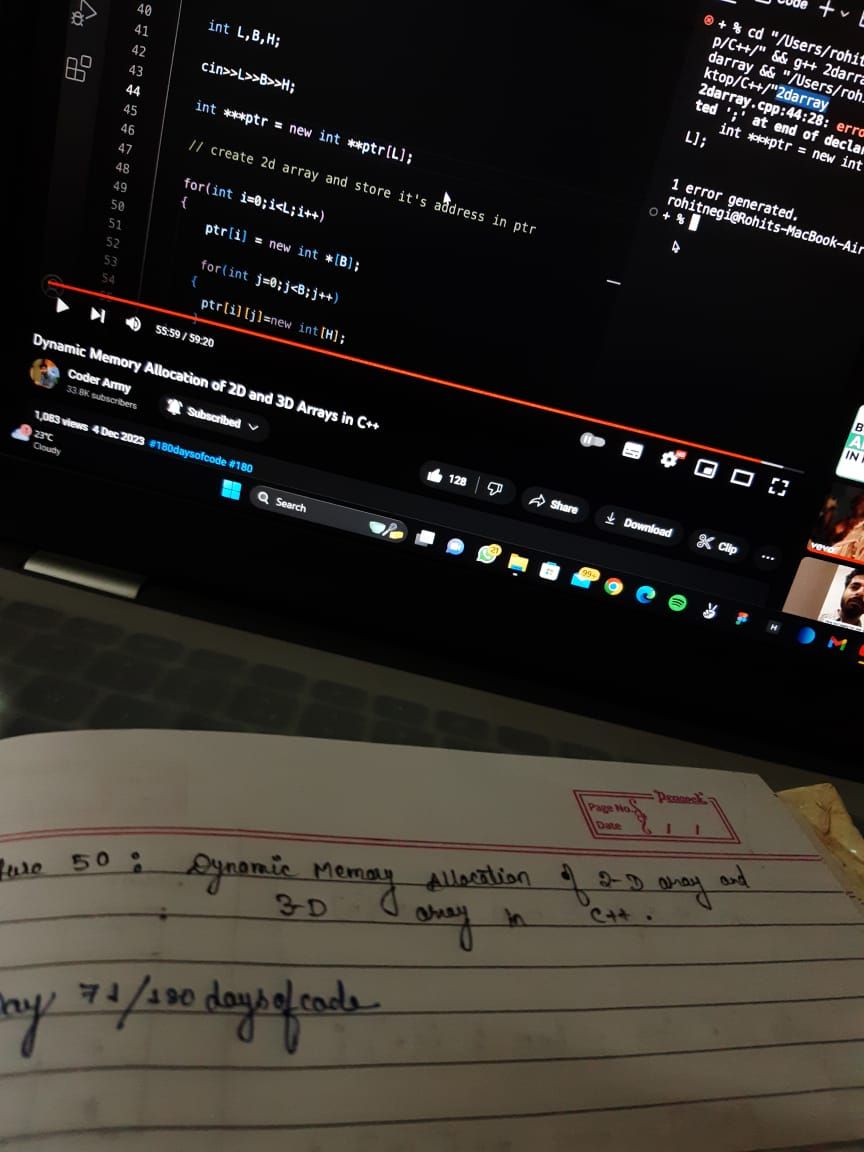 40
41
42
43
44
45
46
47
48
49
50
51
52
53
54
int L,B,H;
cin>>L>>B>>H;
int ***ptr = new int **ptr[L];
// create 2d array and store it's address in ptr
for(int i=0;i<L;i++)
{
ptr[i] = new int *[B];
for(int j=0;j<B;j++)
{
ptr[i][j]=new int[H];
Code
+ % cd "/Users/rohit
p/C++/" && g++ 2darra
darray && "/Users/roh
ktop/C++/"2darray
2darray.cpp:44:28: erro
ted ';' at end of decla
int ***ptr = new int
L];
1 error generated.
rohitnegi@Rohits-MacBook-Air
+ %
55:59 / 59:20
Dynamic Memory Allocation of 2D and 3D Arrays in C++
Coder Army
33.8K subscribers
Subscribed
128
Share
Download
Clip
1,083 views 4 Dec 2023 #180daysofcode #180
23°C
Cloudy
Search
21
99+
vevo
IN
Peacock
Page No.
Date / /
50 : Dynamic Memory Allocation of 2-D array and
3-D array in C++.
ay 71/180 daysofcode